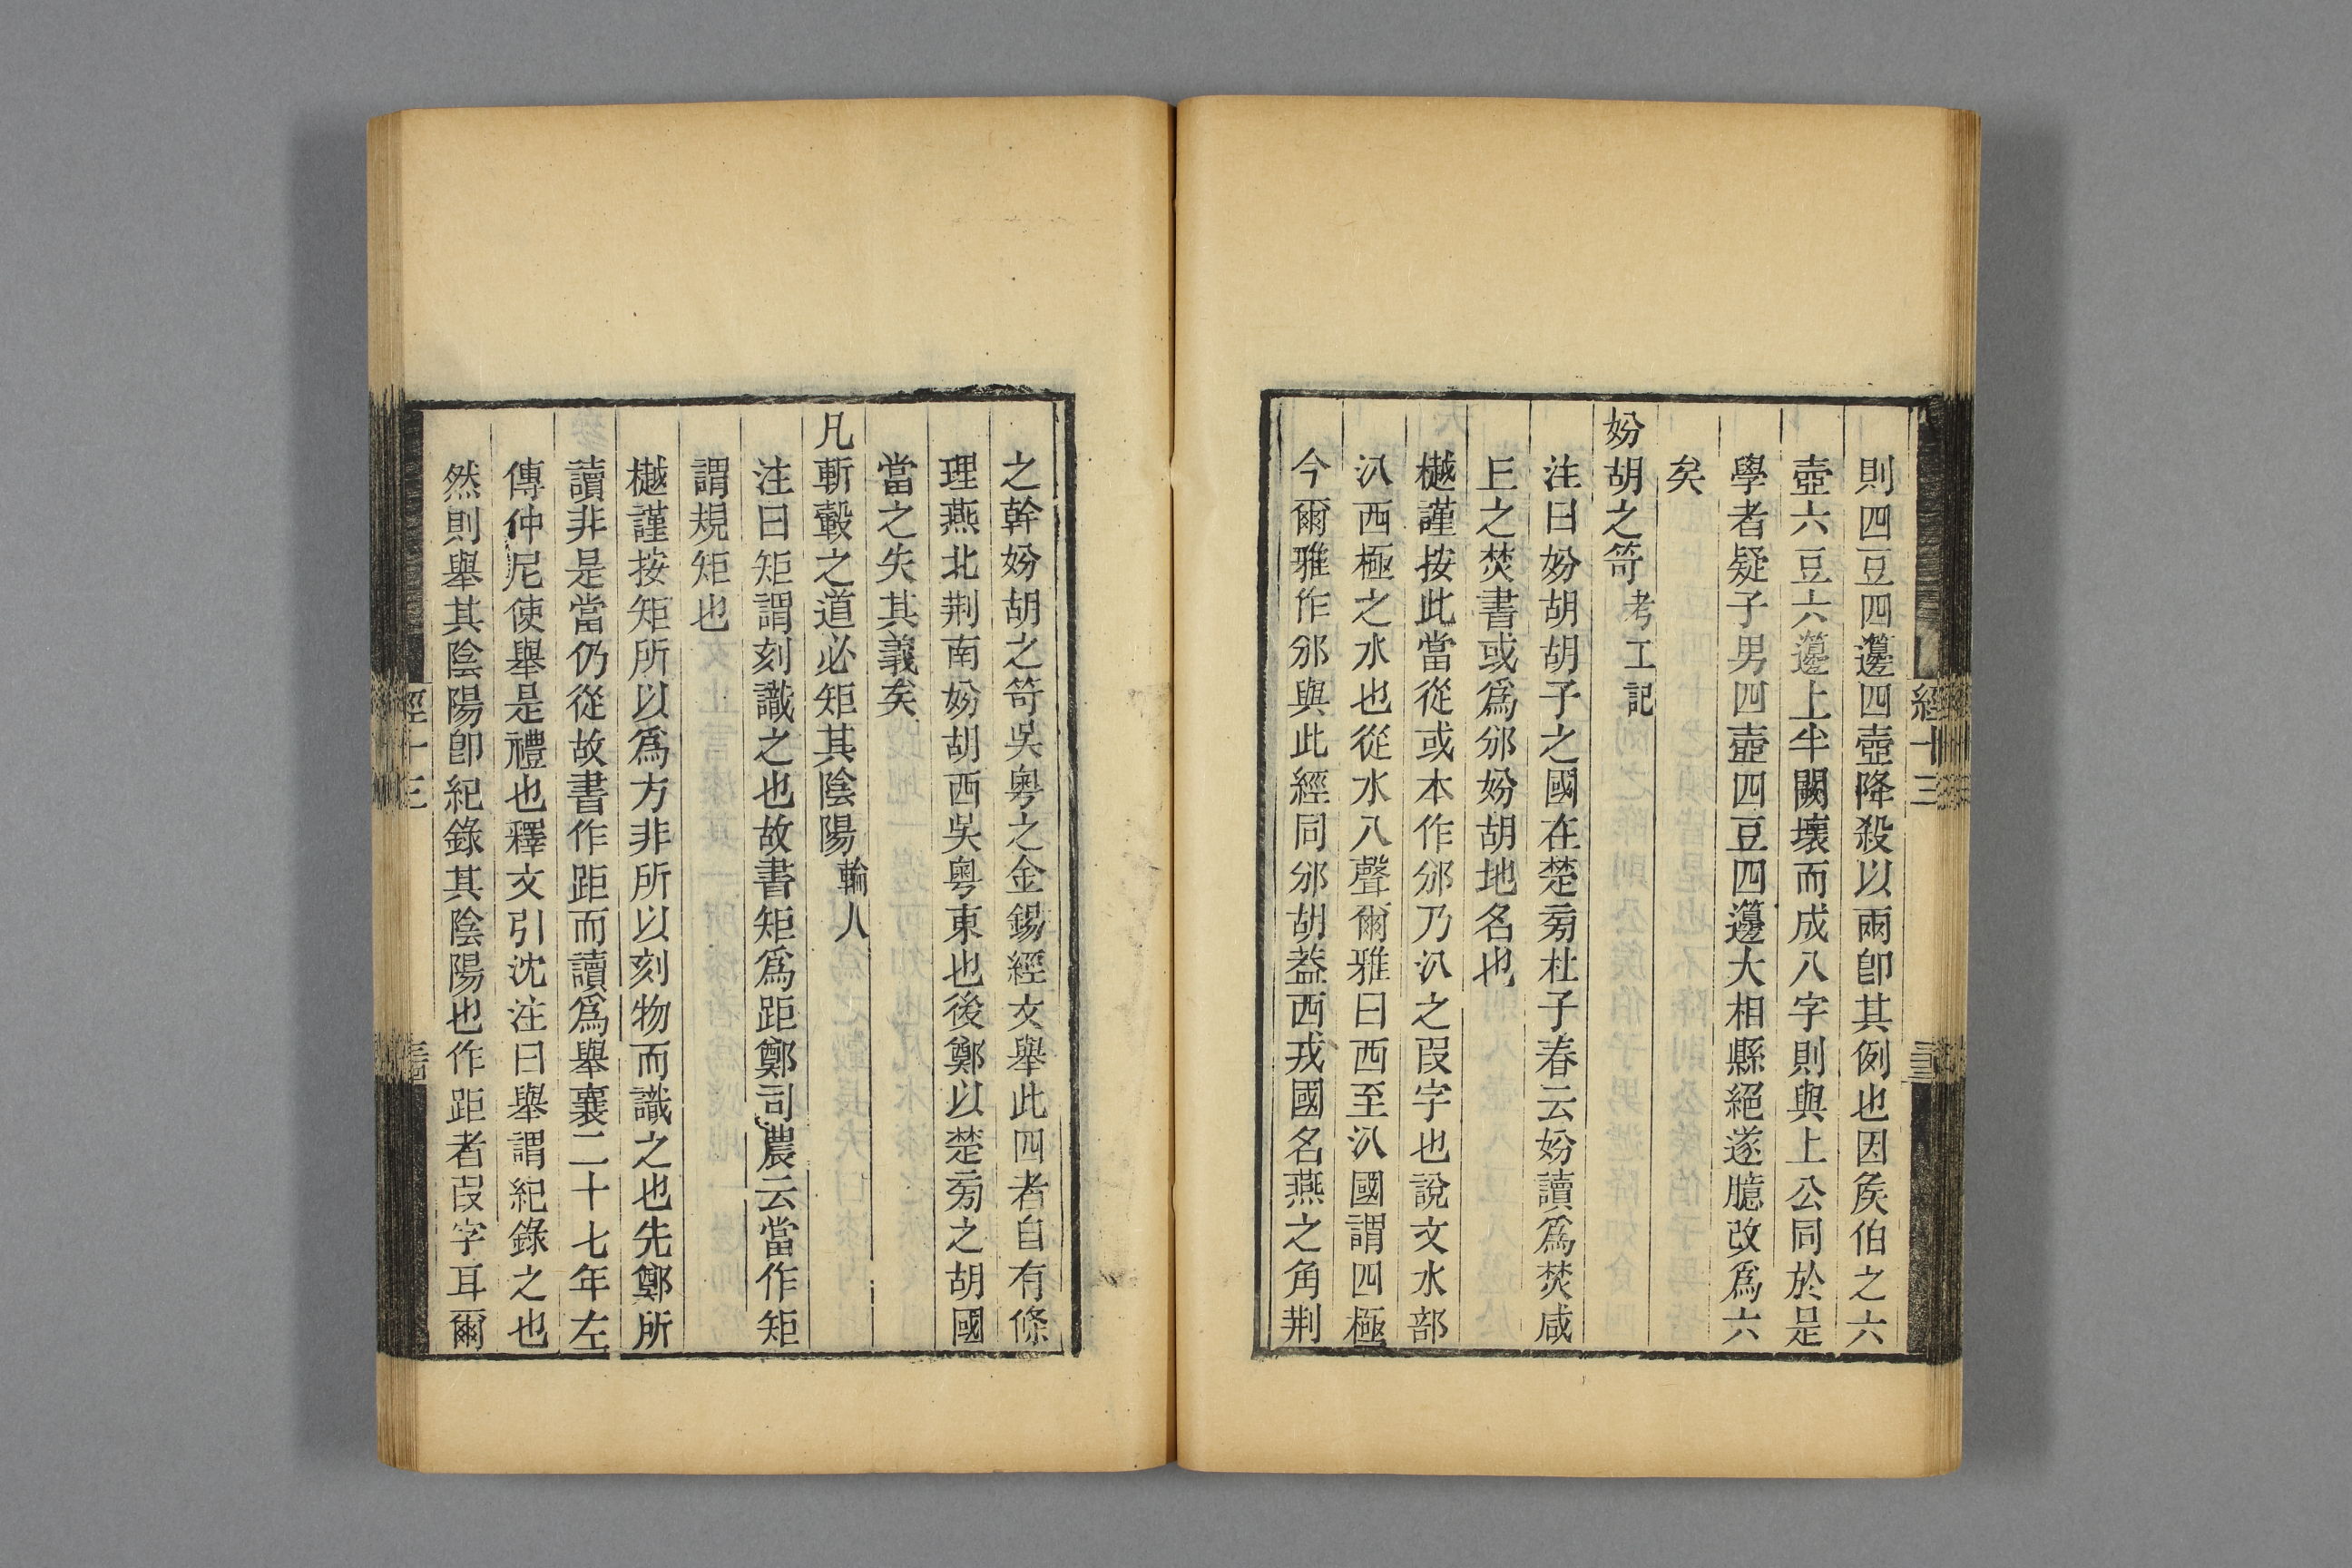 則四豆四籩四壺降殺以兩卽其例也因矦伯之六
壺六豆六籩上半闕壞而成八字則與上公同於是
學者疑子男四壺四豆四籩大相縣絕遂臆改爲六
矣
妢胡之笴考工記
注曰妢胡胡子之國在楚旁杜子春云妢讀爲焚咸
𠀍之焚書或爲邠妢胡地名也
樾謹按此當從或本作邠乃汃之叚字也說文水部
汃西極之水也從水八聲爾雅曰西至汃國謂四極
今爾雅作邠與此經同邠胡葢西戎國名燕之角荆
經十三
之幹妢胡之笴吳粤之金錫經文舉此四者自有條
理燕北荆南妢胡西吳粤東也後鄭以楚旁之胡國
當之失其義矣
凡斬轂之道必矩其陰陽輪人
注曰矩謂刻識之也故書矩爲距鄭司農云當作矩
謂規矩也
樾謹按矩所以爲方非所以刻物而識之也先鄭所
讀非是當仍從故書作距而讀爲舉襄二十七年左
傳仲尼使舉是禮也釋文引沈注曰舉謂紀錄之也
然則舉其陰陽卽紀錄其陰陽也作距者叚字耳爾
經十三